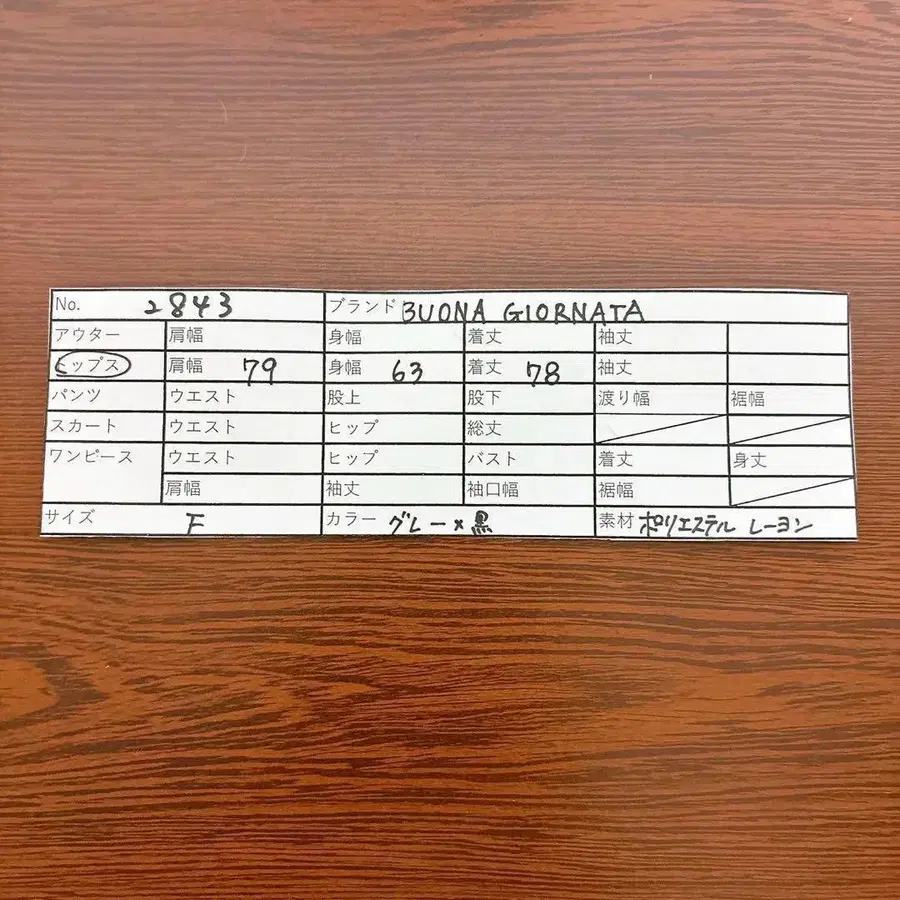 No. 2843 ブランド BUONA GIORNATA
アウター 肩幅 身幅 着丈 袖丈
トップス 肩幅 79 身幅 63 着丈 78 袖丈
パンツ ウエスト 股上 股下 渡り幅 裾幅
スカート ウエスト ヒップ 総丈
ワンピース ウエスト ヒップ バスト 着丈 身丈
肩幅 袖丈 袖口幅 裾幅
サイズ F カラー グレー×黒 素材 ポリエステル レーヨン